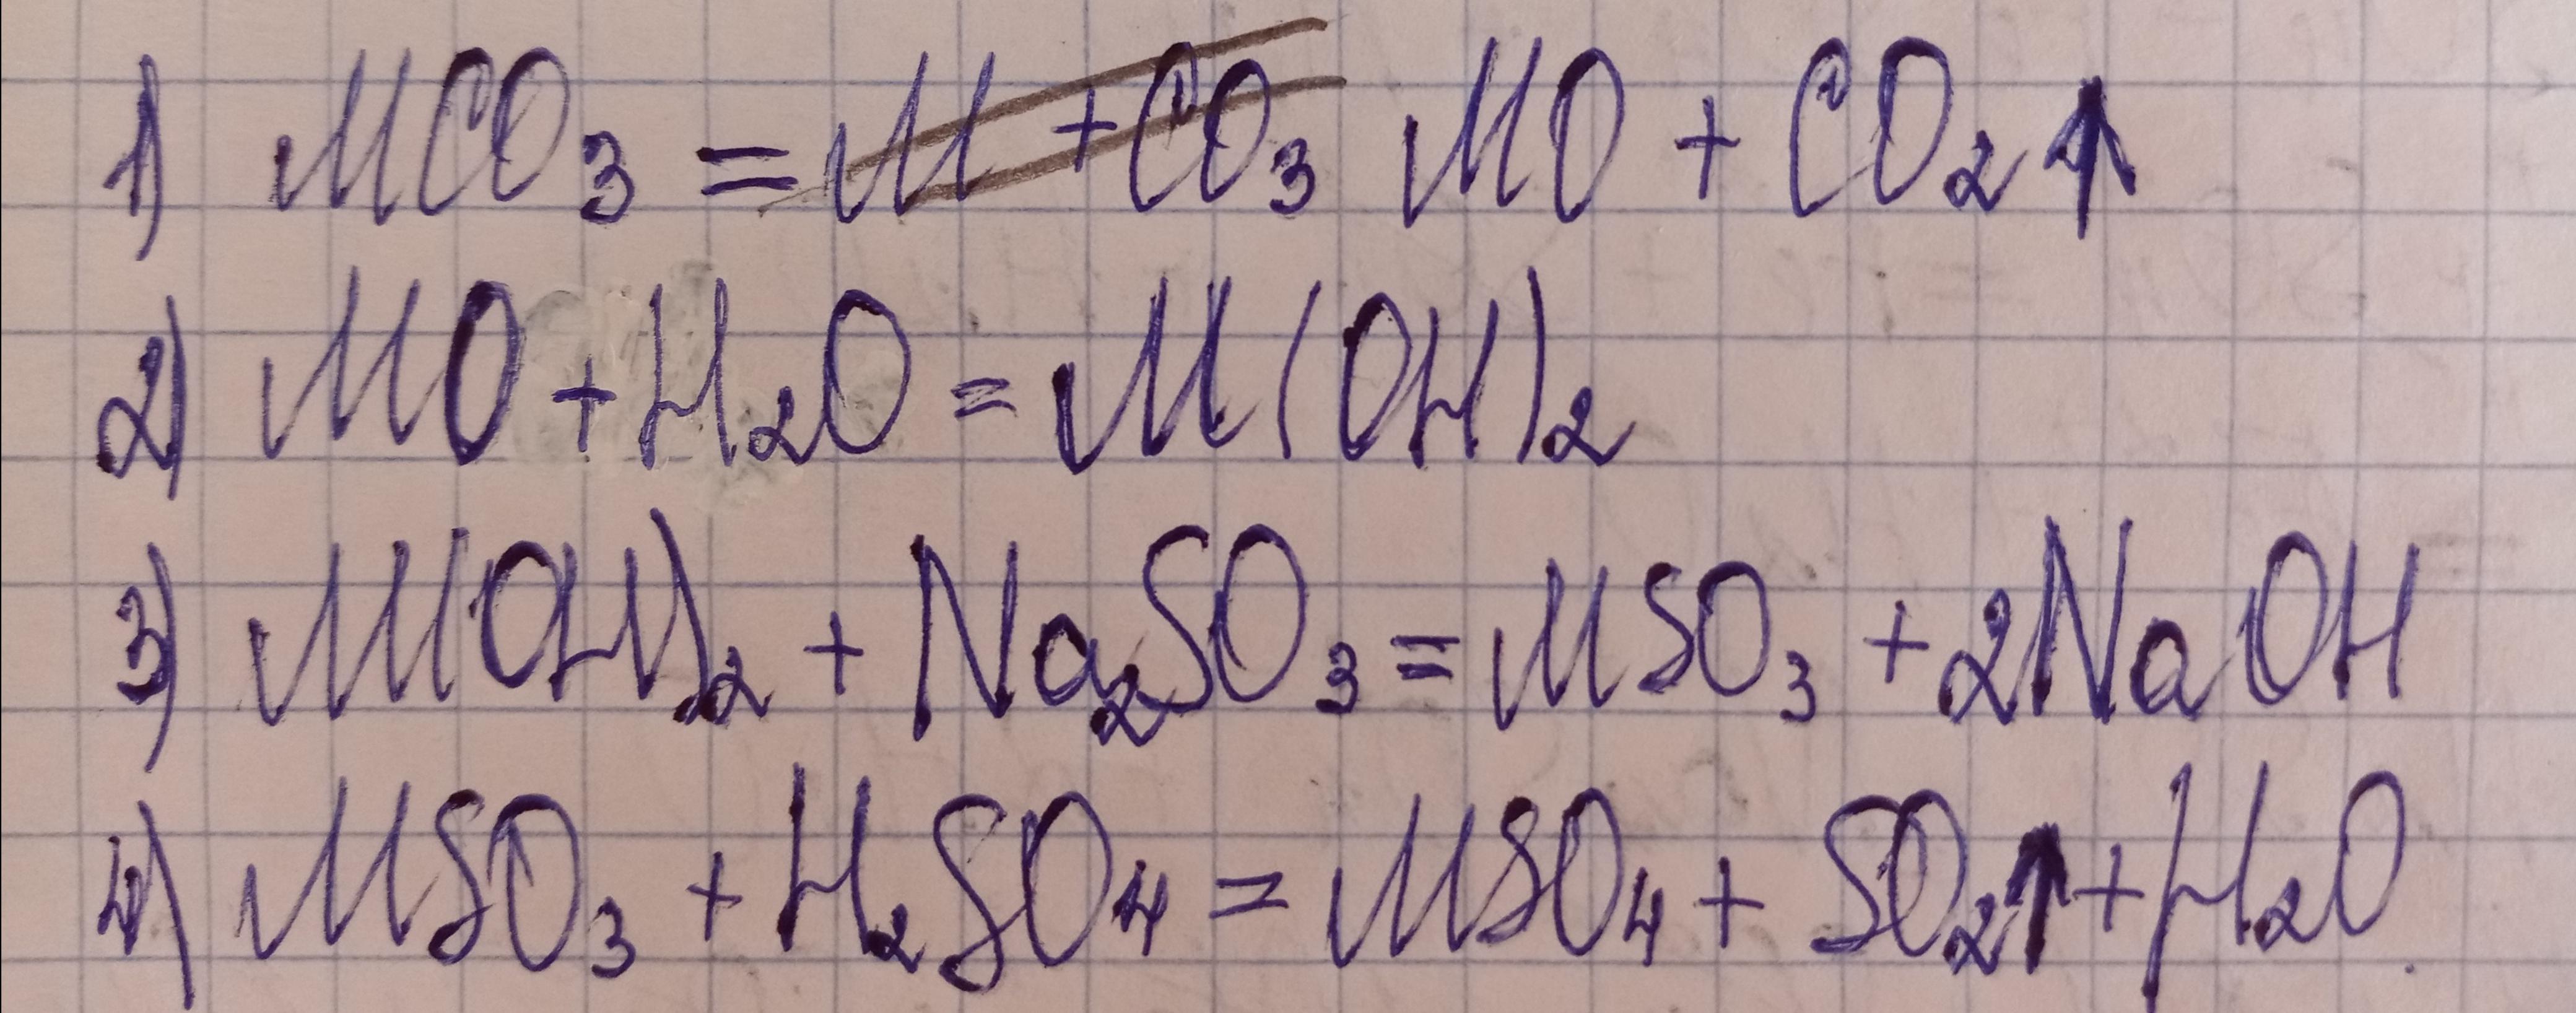 1) MCO₃ = M + CO₃ MO + CO₂↑
2) MO + H₂O = M(OH)₂
3) M(OH)₂ + Na₂SO₃ = MSO₃ + 2NaOH
4) MSO₃ + H₂SO₄ = MSO₄ + SO₂↑ + H₂O